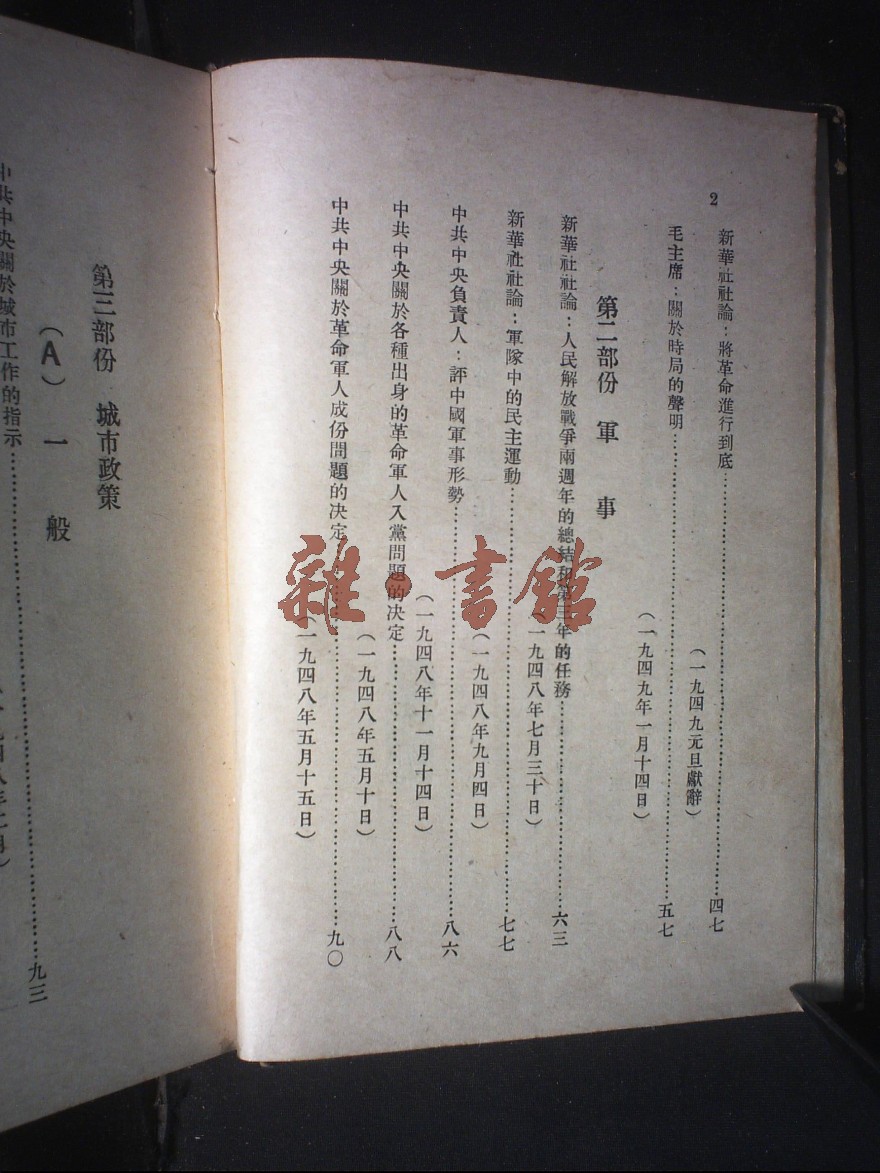 2
新華社社論：將革命進行到底……………………四七
（一九四九元旦獻辭）
毛主席：關於時局的聲明……………………五七
（一九四九年一月十四日）
第二部份　軍　事
新華社社論：人民解放戰爭兩週年的總結和第三年的任務……………………六三
（一九四八年七月三十日）
新華社社論：軍隊中的民主運動……………………七七
（一九四八年九月四日）
中共中央負責人：評中國軍事形勢……………………八六
（一九四八年十一月十四日）
中共中央關於各種出身的革命軍人入黨問題的決定……………………八八
（一九四八年五月十日）
中共中央關於革命軍人成份問題的決定……………………九〇
（一九四八年五月十五日）
第三部份　城市政策
（A）一　般
中共中央關於城市工作的指示……………………九三
雜·書館